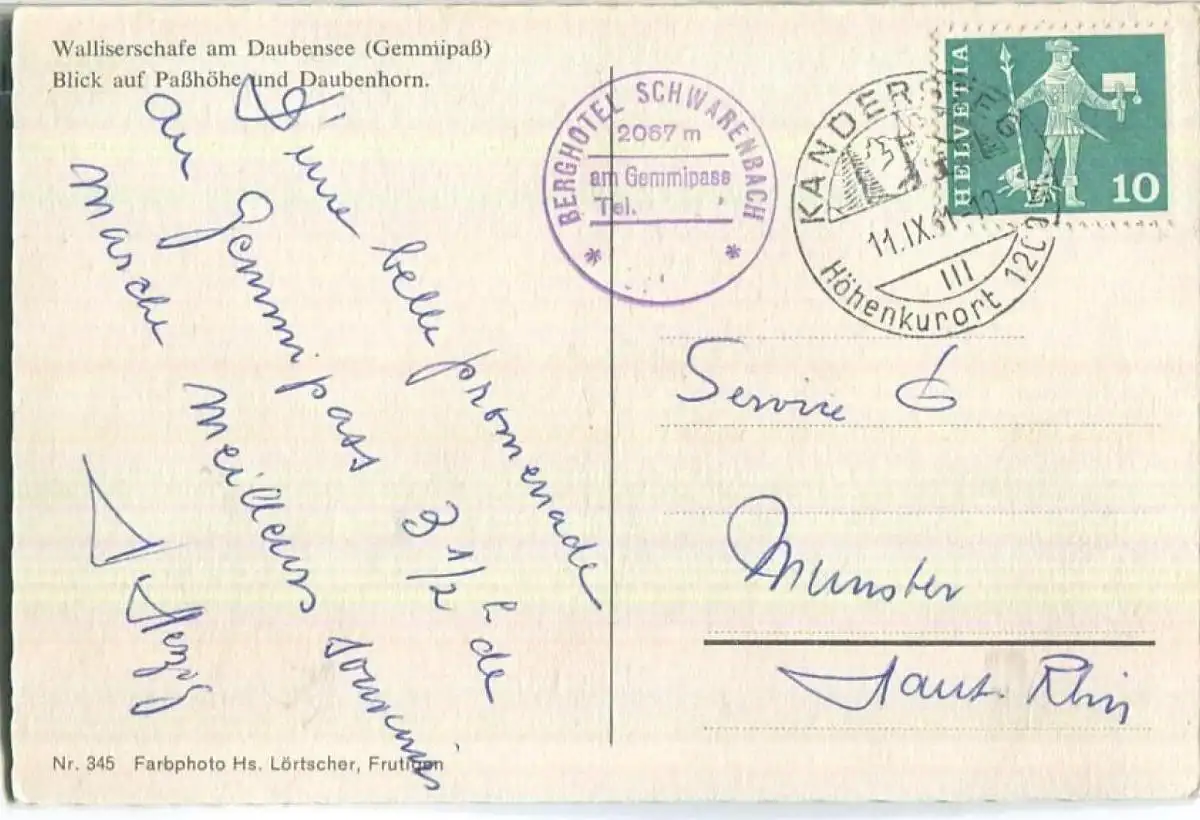 Walliserschafe am Daubensee (Gemmipaß)
Blick auf Paßhöhe und Daubenhorn.
D'une belle promenade
au Gemmi pass 3 1/2 h de
marche meilleurs souvenirs
BERGHOTEL SCHWARENBACH
2067 m
am Gemmipass
Tel.
KANDERSTEG
11.IX.
III
Höhenkurort 1200 m
HELVETIA
10
Service 6
Munster
Haut-Rhin
Nr. 345 Farbphoto Hs. Lörtscher, Frutigen